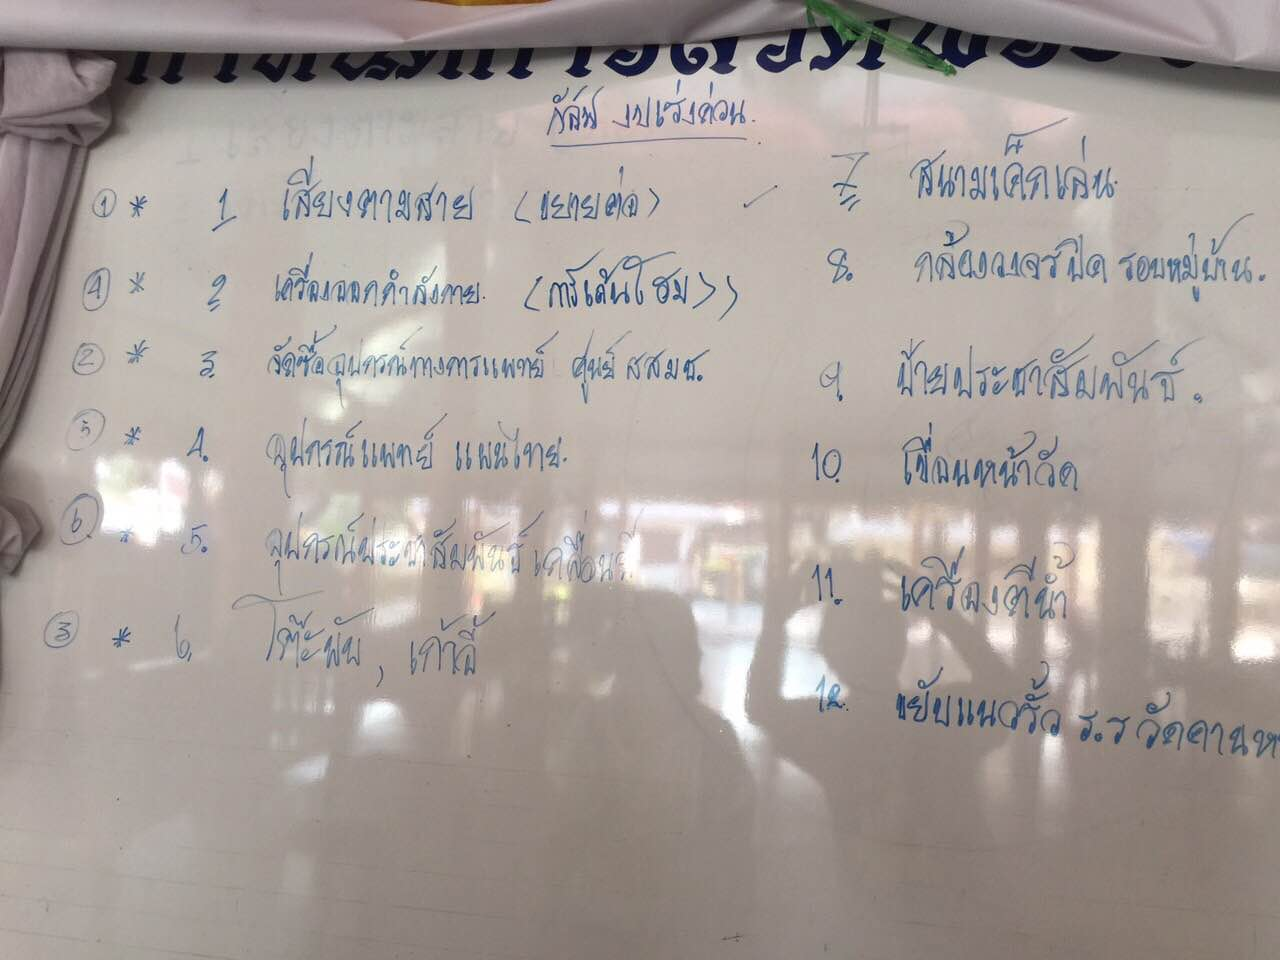 กัลฟ์ งบเร่งด่วน.
① * 1 เสียงตามสาย (ขยายต่อ) ✓
④ * 2 เครื่องออกกำลังกาย. (การ์เด้นโฮม))
② * 3. จัดซื้ออุปกรณ์ทางการแพทย์ ศูนย์ สสมช.
⑤ * 4. อุปกรณ์แพทย์ แผนไทย.
⑥ * 5. อุปกรณ์ประชาสัมพันธ์ เคลื่อนที่
③ * 6. โต๊ะพับ, เก้าอี้
7 สนามเด็กเล่น.
8. กล้องวงจรปิด รอบหมู่บ้าน.
9. ป้ายประชาสัมพันธ์.
10. เขื่อนหน้าวัด
11. เครื่องตีน้ำ
12. ขยับแนวรั้ว ร.ร วัดดานห